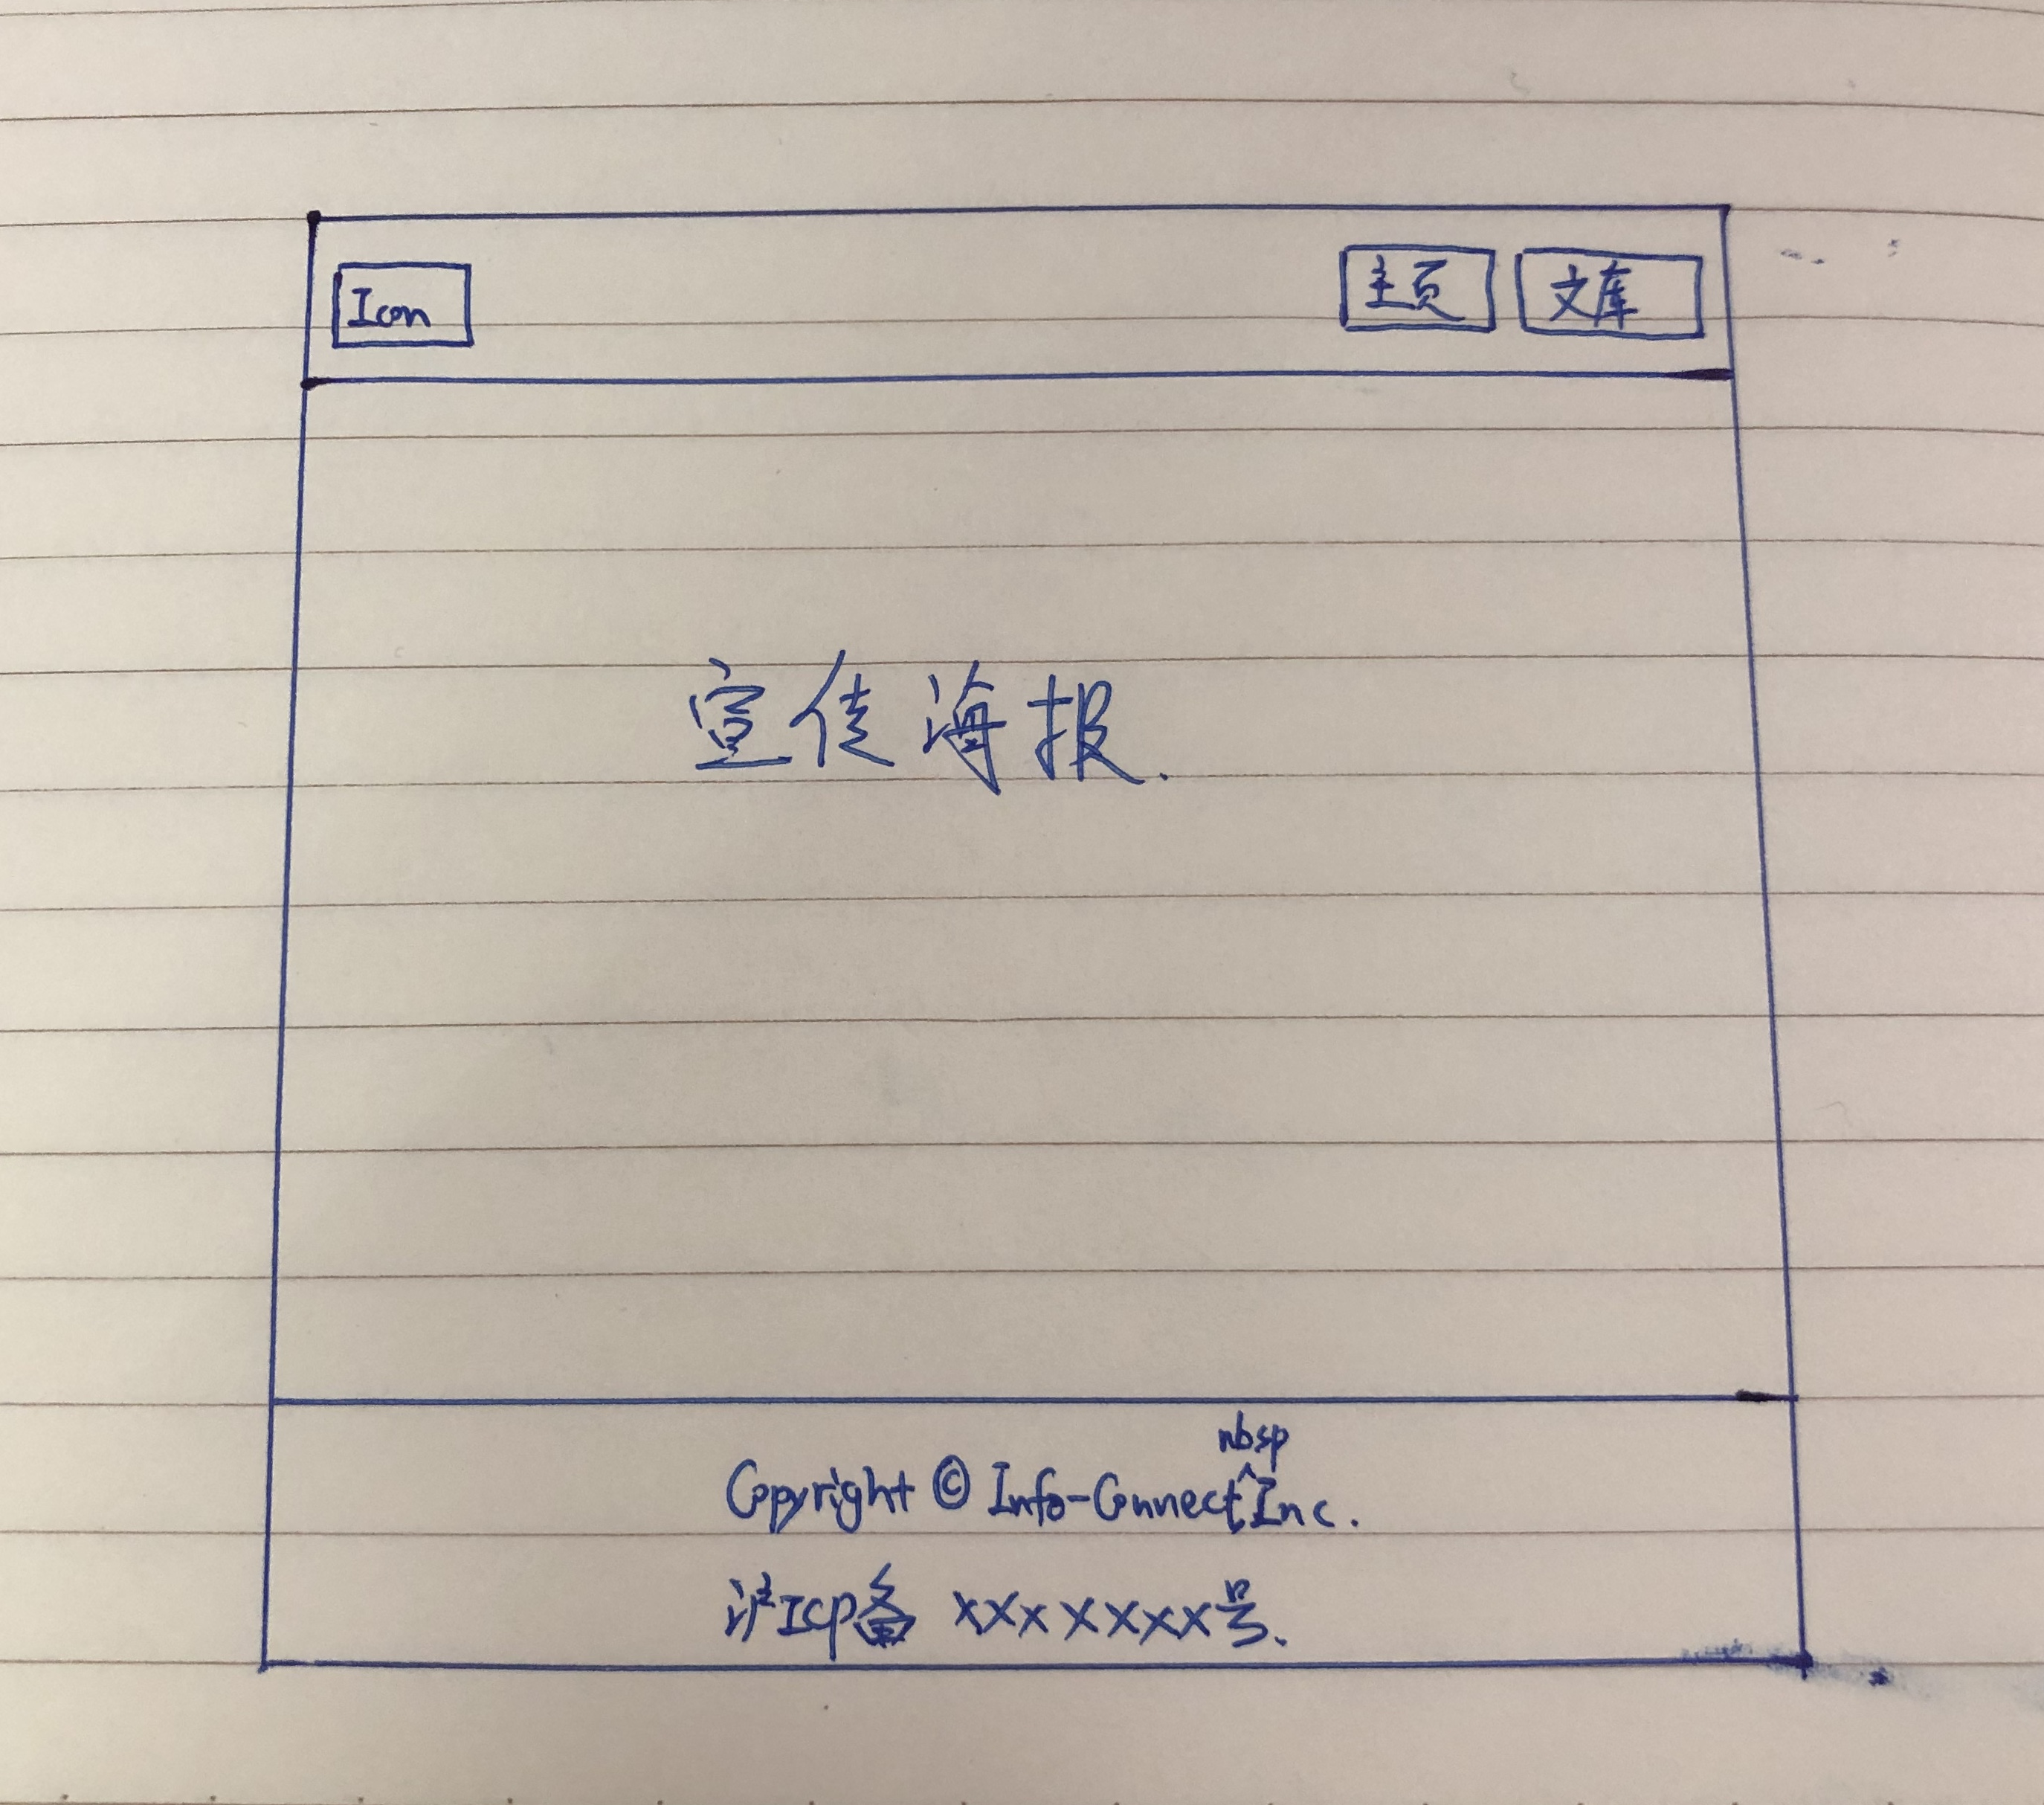 Icon 主页 文库
宣传海报.
nbsp
Copyright © Info-Connect^Inc.
沪ICP备 XXXXXXX号.